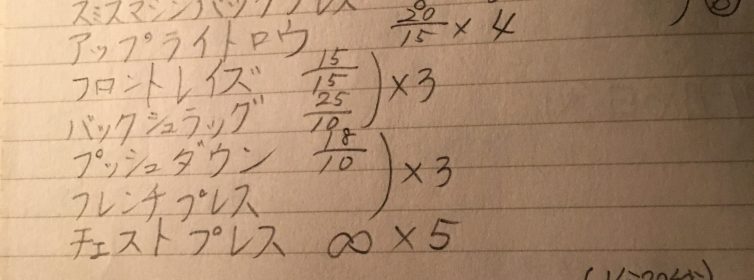 スミスマシンバックプレス
アップライトロウ 20/15 × 4
フロントレイズ 15/15
バックシュラッグ 25/10 ) × 3
プッシュダウン 18/10
フレンチプレス ) × 3
チェストプレス ∞ × 5